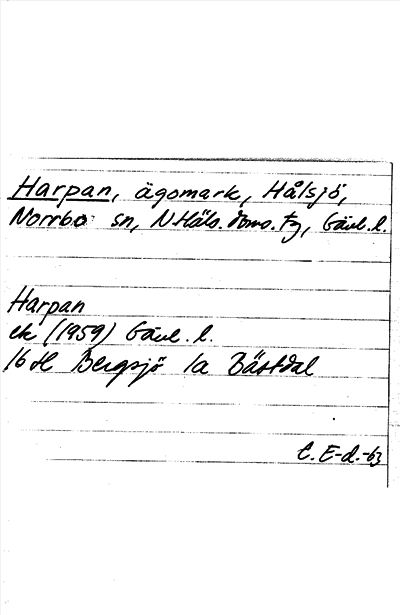 Harpan, ägomark, Hålsjö,
Norrbo sn, N. Häls. doms. tg, Gävl. l.
Harpan
ek (1959) Gävl. l.
16 H Bergsjö 1a Bästdal
C. E-d.-63